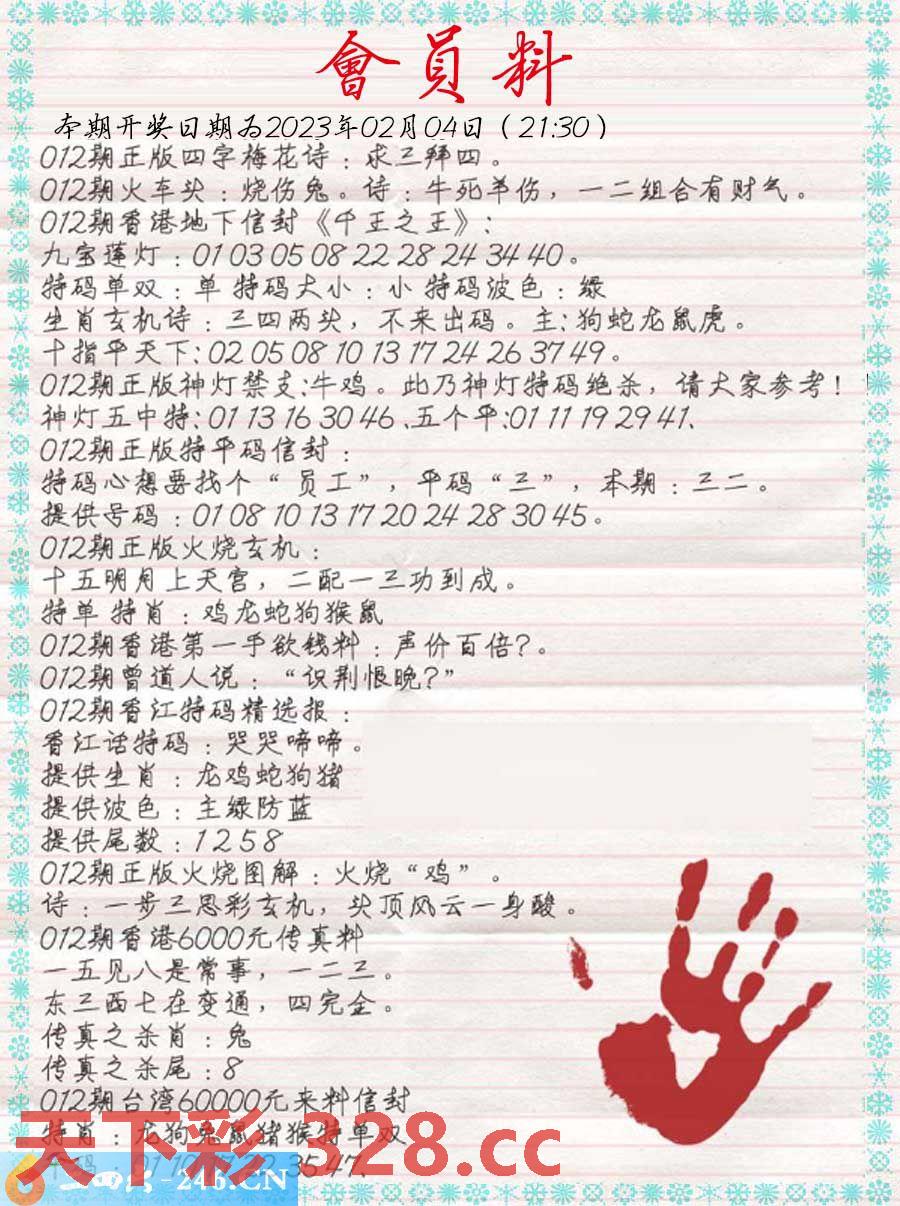 會員料
本期开奖日期为2023年02月04日（21:30）
012期正版四字梅花诗：求三拜四。
012期火车头：烧伤兔。诗：牛死羊伤，一二组合有财气。
012期香港地下信封《千王之王》:
九宝莲灯：01 03 05 08 22 28 24 34 40。
特码单双：单 特码大小：小 特码波色：绿
生肖玄机诗：三四两头，不来出码。主:狗蛇龙鼠虎。
十指平天下:02 05 08 10 13 17 24 26 37 49。
012期正版神灯禁支:牛鸡。此乃神灯特码绝杀，请大家参考！
神灯五中特:01 13 16 30 46 .五个平:01 11 19 29 41.
012期正版特平码信封：
特码心想要找个“员工”，平码“三”，本期：三二。
提供号码：01 08 10 13 17 20 24 28 30 45。
012期正版火烧玄机：
十五明月上天宫，二配一三功到成。
特单 特肖：鸡龙蛇狗猴鼠
012期香港第一手欲钱料：声价百倍?。
012期曾道人说：“识荆恨晚?”
012期香江特码精选报：
香江话特码：哭哭啼啼。
提供生肖：龙鸡蛇狗猪
提供波色：主绿防蓝
提供尾数：1 2 5 8
012期正版火烧图解：火烧“鸡”。
诗：一步三思彩玄机，头顶风云一身酸。
012期香港6000元传真料
一五见八是常事，一二三。
东三西七在变通，四完金。
传真之杀肖：兔
传真之杀尾：8
012期台湾60000元来料信封
特肖：龙狗兔鼠猪猴特单双
35 47.
天下彩328.cc
-246.CN